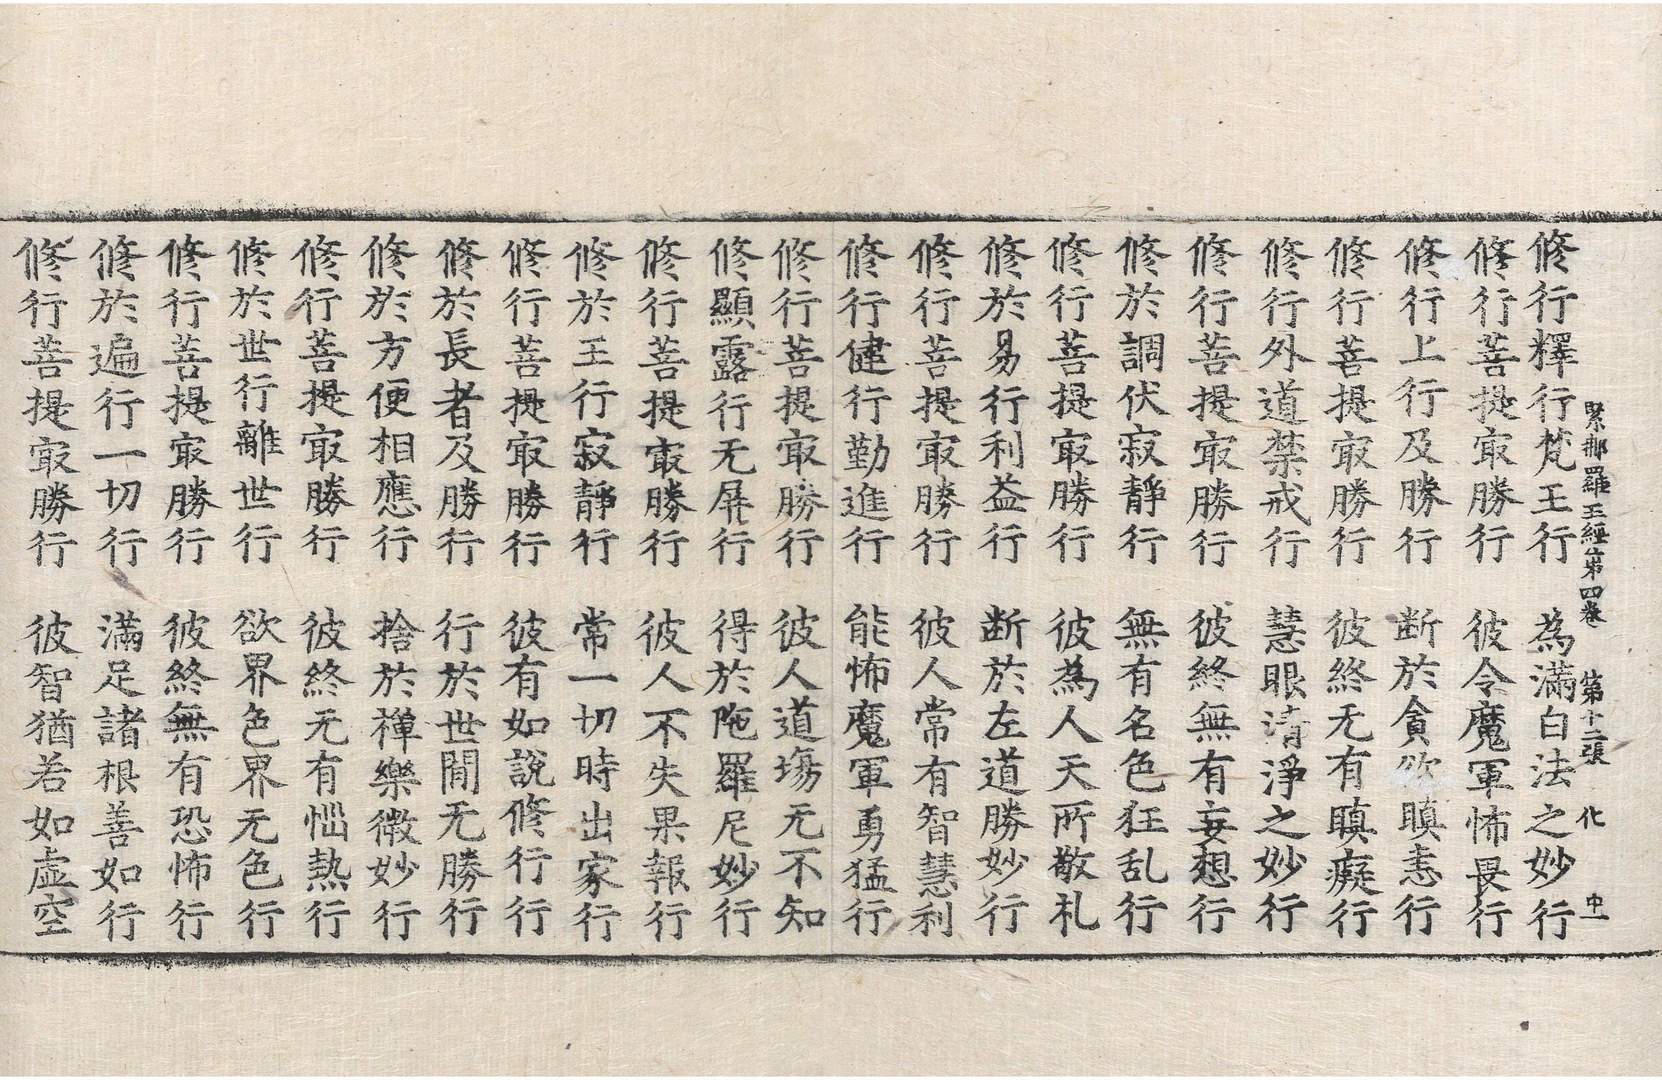 緊那羅王經第四卷 第十二張 化 中一
修行釋行梵王行 為滿白法之妙行
修行菩提冣勝行 彼令魔軍怖畏行
修行上行及勝行 断於貪欲瞋恚行
修行菩提冣勝行 彼終无有瞋癡行
修行外道禁戒行 慧眼清淨之妙行
修行菩提冣勝行 彼終無有妄想行
修於調伏寂靜行 無有名色狂乱行
修行菩提冣勝行 彼為人天所敬礼
修於易行利益行 断於左道勝妙行
修行菩提冣勝行 彼人常有智慧利
修行健行勤進行 能怖魔軍勇猛行
修行菩提冣勝行 彼人道場无不知
修顯露行无屏行 得於陁羅尼妙行
修行菩提冣勝行 彼人不失果報行
修於王行寂靜行 常一切時出家行
修行菩提冣勝行 彼有如說修行行
修於長者及勝行 行於世閒无勝行
修於方便相應行 捨於禪樂微妙行
修行菩提冣勝行 彼終无有惱熱行
修於世行離世行 欲界色界无色行
修行菩提冣勝行 彼終無有恐怖行
修於遍行一切行 滿足諸根善如行
修行菩提冣勝行 彼智猶若如虛空